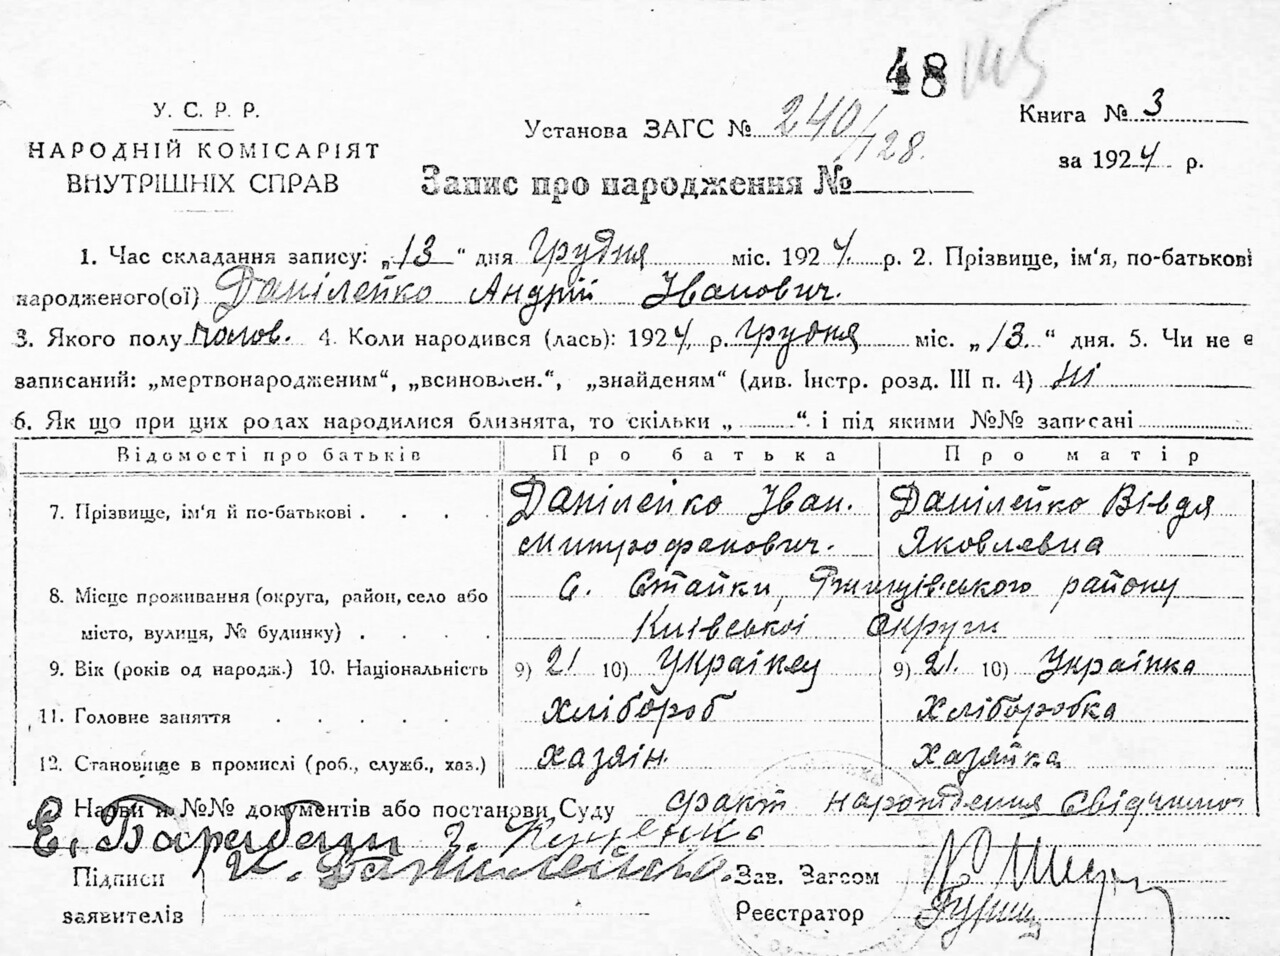 48
У. С. Р. Р.
НАРОДНІЙ КОМІСАРІЯТ
ВНУТРІШНІХ СПРАВ
Установа ЗАГС № 240/128.
Книга № 3
за 1924 р.
Запис про народження №
1. Час складання запису: „13“ дня Грудня міс. 1924. р. 2. Прізвище, ім'я, по-батькові
народженого(ої) Данілейко Андрій Іванович.
3. Якого полу 4. Коли народився (лась): 1924 р. Грудня міс. „13.“ дня. 5. Чи не є
записаний: „мертвонародженим“, „всиновлен.“, „знайденям“ (див. Інстр. розд. III п. 4) Ні
6. Як що при цих родах народилися близнята, то скільки „ “ і під якими №№ записані
Відомості про батьків Про батька Про матір
7. Прізвище, ім'я й по-батькові . . . . Данілейко Іван. Данілейко Вівдя
Митрофанович. Яковлевна
8. Місце проживання (округа, район, село або С. Стайки, Ржищівського району
місто, вулиця, № будинку) . . . . Київської Округи
9. Вік (років од народж.) 10. Національність 9) 21 10) Українец 9) 21. 10) Українка
11. Головне заняття . . . . . Хлібороб Хліборобка
12. Становище в промислі (роб., служб., хаз.) Хазяїн. Хазяйка
Назви й №№ документів або постанови Суду факт нарождения
Е. Барабаш
Підписи И. Данилейко. Зав. Загсом
заявителів Реєстратор